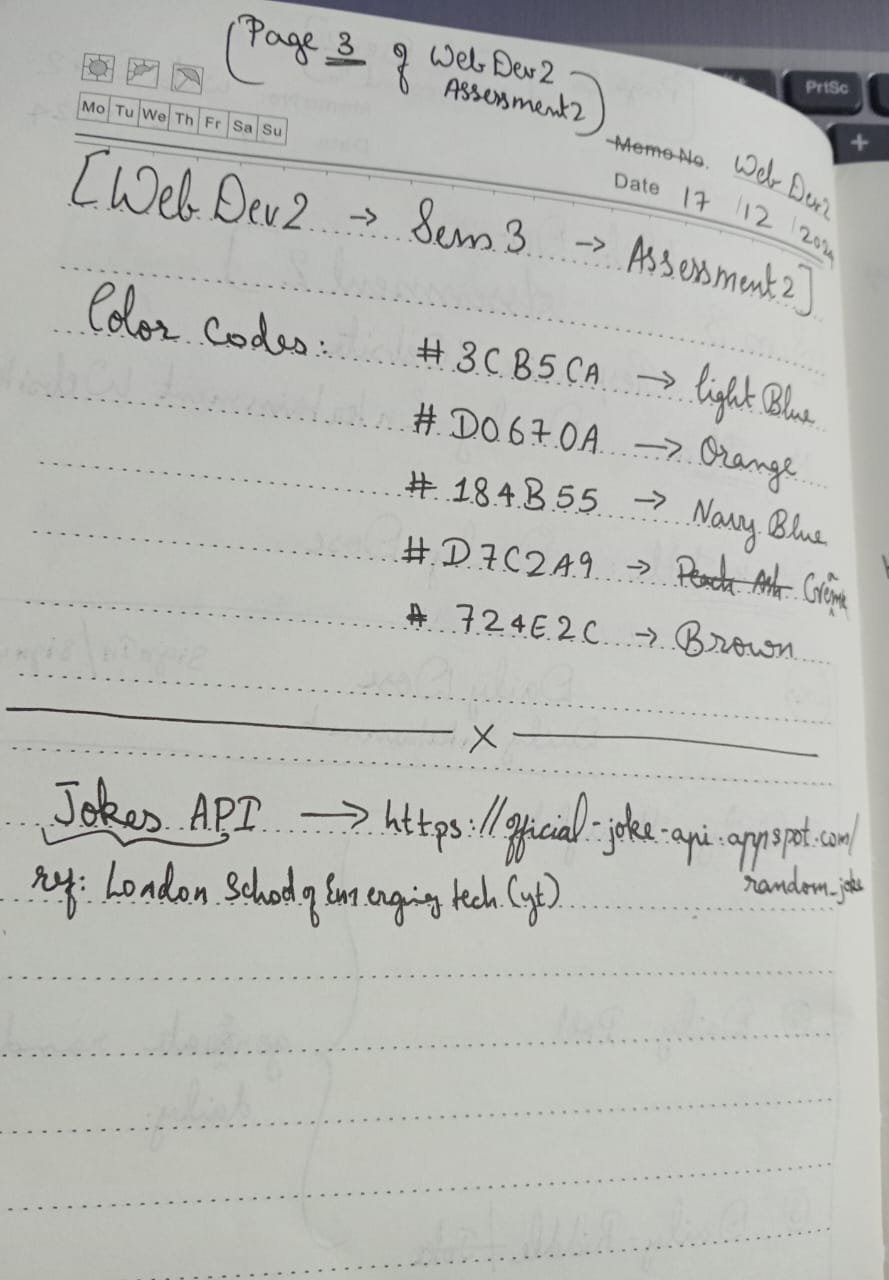 (Page 3 of Web Dev2
Assessment2)
Mo Tu We Th Fr Sa Su
Memo No. Web Dev2
Date 17/12/2024
[Web Dev2 → Sem 3 → Assessment2]
Color Codes: #3CB5CA → light Blue
#D0670A → Orange
#184B55 → Navy Blue
#D7C2A9 → Peach Crème
#724E2C → Brown
X
Jokes API → https://official-joke-api.appspot.com/
random_joke
ref: London School of Emerging tech (yt)
PrtSc
+